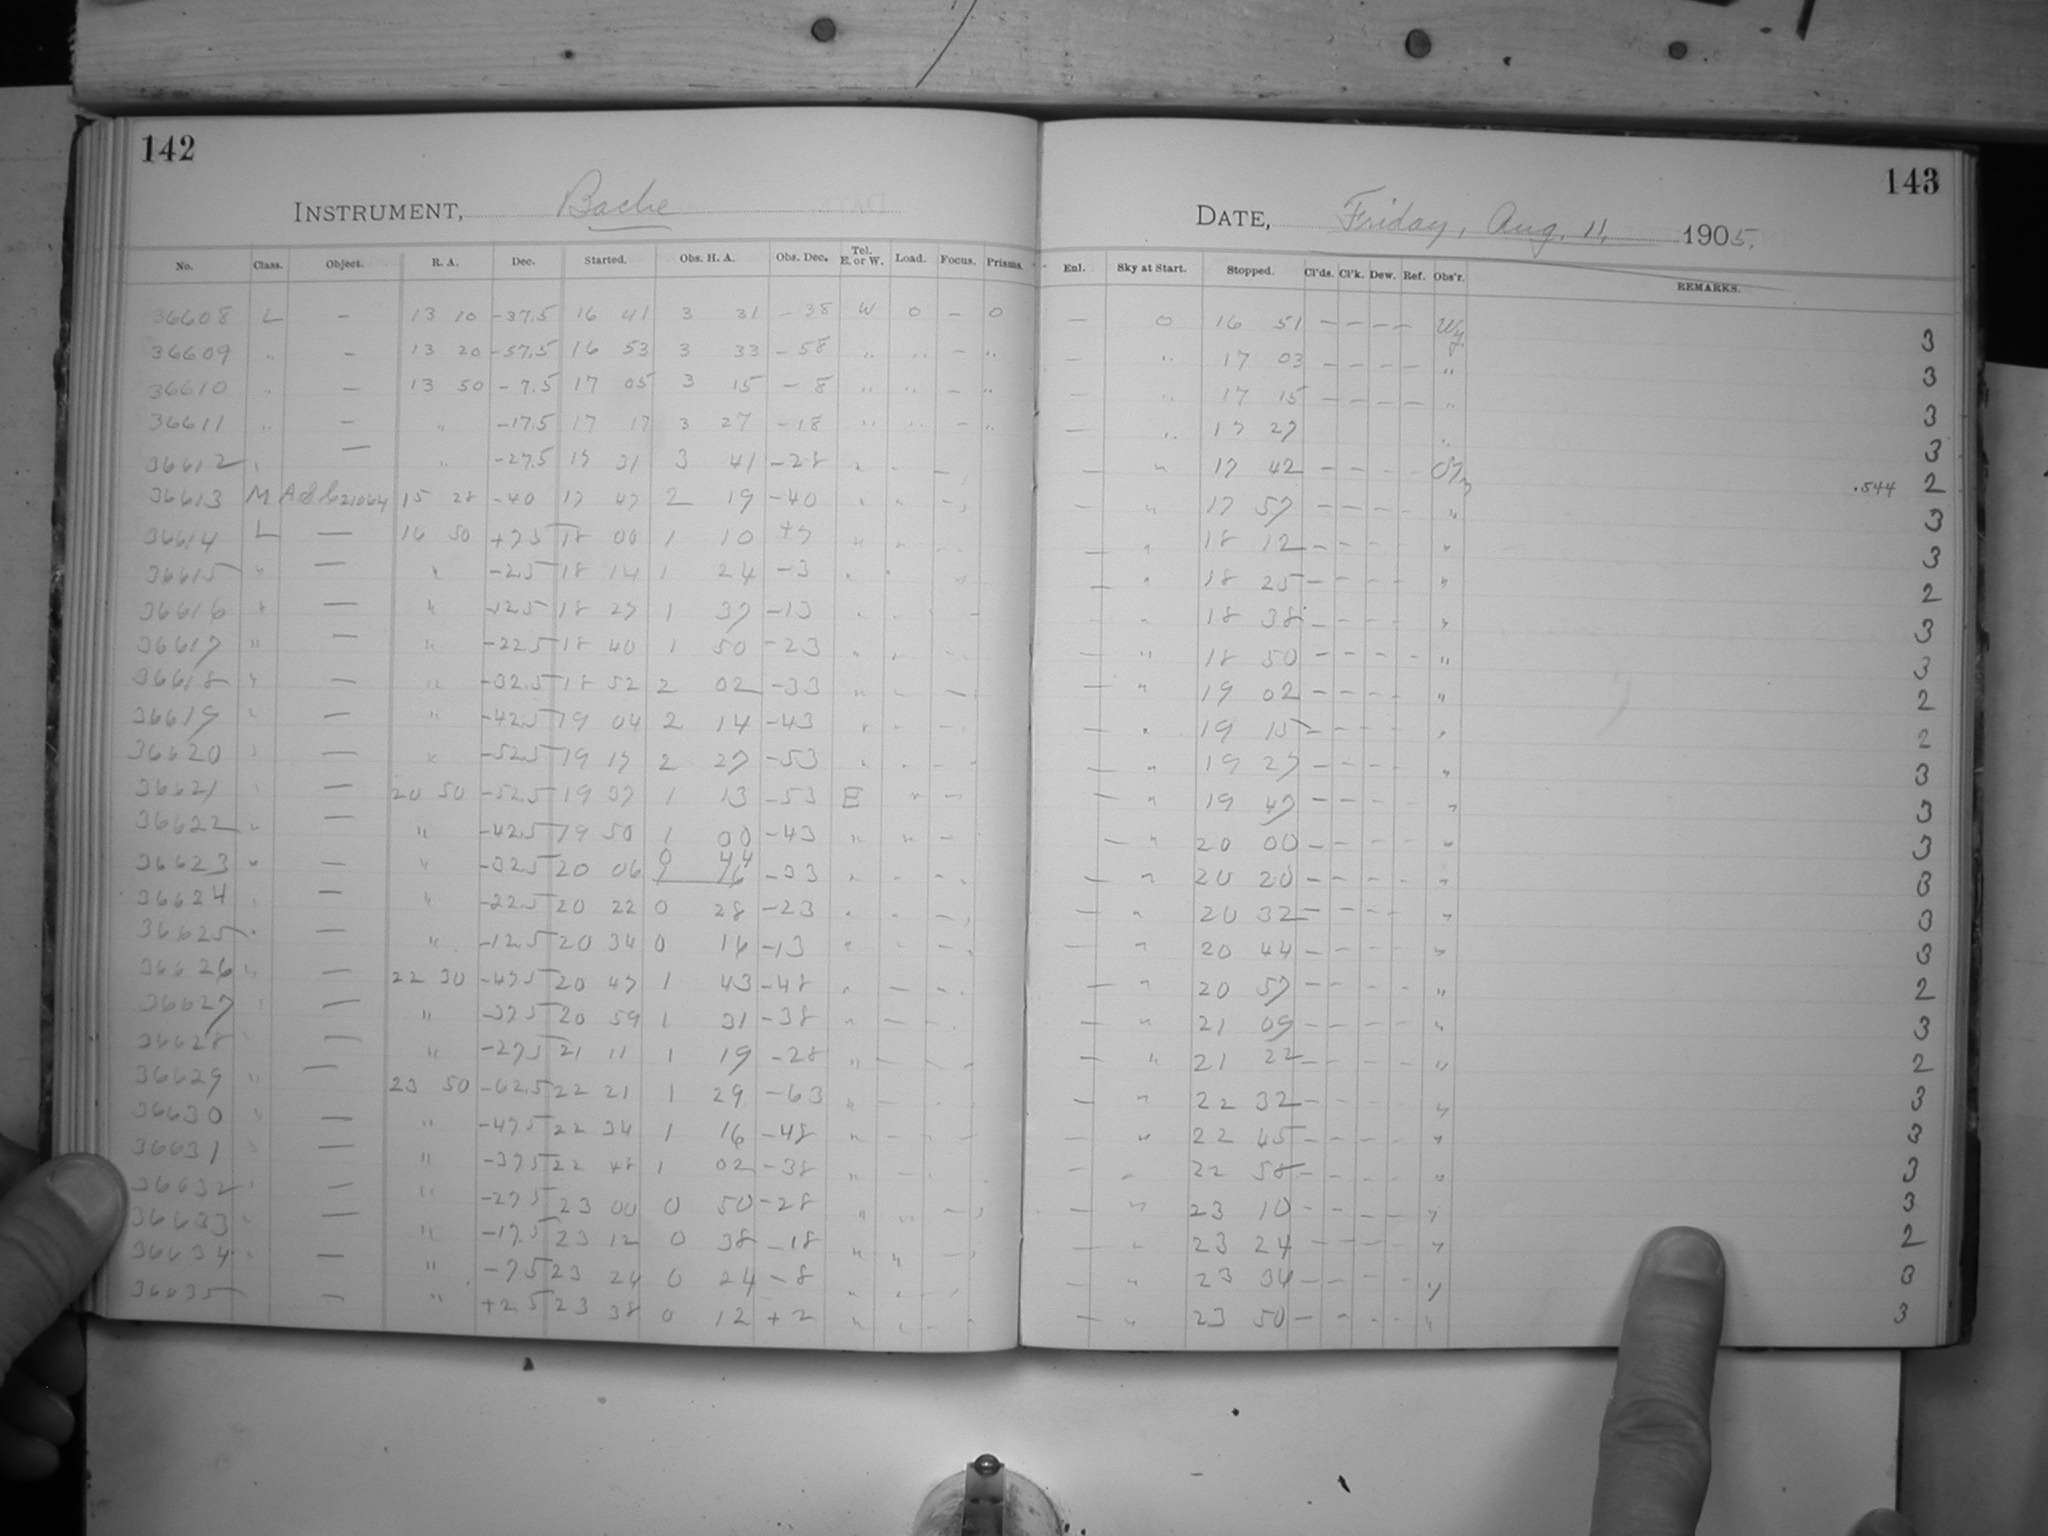 142
143
INSTRUMENT, Bache
DATE, Friday, Aug. 11, 1905.
No. Class. Object. R. A. Dec. Started. Obs. H. A. Obs. Dec. Tel. E. or W. Load. Focus. Prisms. Enl. Sky at Start. Stopped. Cl'ds. Cl'k. Dew. Ref. Obs'r. REMARKS.
36608 L — 13 10 -37.5 16 41 3 31 -38 W 0 — 0 — 0 16 51 — — — — Wy. 3
36609 " — 13 20 -57.5 16 53 3 33 -58 " " — " — " 17 03 — — — — " 3
36610 " — 13 50 -7.5 17 05 3 15 -8 " " — " — " 17 15 — — — — " 3
36611 " — " -17.5 17 17 3 27 -18 " " — " — " 17 27 " 3
36612 " — " -27.5 17 31 3 41 -28 " " — " — " 17 42 — — — — 2
36613 M 15 28 -40 17 47 2 19 -40 " " — " — " 17 57 — — — — " .544 3
36614 L — 16 50 +7.5 18 00 1 10 +7 " " — — " 18 12 — — — — " 3
36615 " — " -2.5 18 14 1 24 -3 " " — " 18 25 — — — — " 2
36616 " — " -12.5 18 27 1 37 -13 " — " 18 38 — — — — " 3
36617 " — " -22.5 18 40 1 50 -23 " " — — " 18 50 — — — — " 3
36618 " — " -32.5 18 52 2 02 -33 " " — — " 19 02 — — — — " 2
36619 " — " -42.5 19 04 2 14 -43 " — — — " 19 15 — — — — " 2
36620 " — " -52.5 19 17 2 27 -53 " " — — " 19 27 — — — " 3
36621 " — 20 50 -52.5 19 37 1 13 -53 E " — — " 19 47 — — — — " 3
36622 " — " -42.5 19 50 1 00 -43 " " — — " 20 00 — — — — " 3
36623 " — " -32.5 20 06 0 44 -33 " " — — " 20 20 — — — — " 3
36624 " — " -22.5 20 22 0 28 -23 " " — — " 20 32 — — — — " 3
36625 " — " -12.5 20 34 0 16 -13 " " — — " 20 44 — — — — " 3
36626 " — 22 30 -47.5 20 47 1 43 -48 " — — — " 20 57 — — — — " 2
36627 " — " -37.5 20 59 1 31 -38 " — — — " 21 09 — — — — " 3
36628 " — " -27.5 21 11 1 19 -28 " — — — " 21 22 — — — — " 2
36629 " — 23 50 -62.5 22 21 1 29 -63 " — — — " 22 32 — — — — " 3
36630 " — " -47.5 22 34 1 16 -48 " — — — " 22 45 — — — — " 3
36631 " — " -37.5 22 48 1 02 -38 " — — — " 22 58 — — — — " 3
36632 " — " -27.5 23 00 0 50 -28 " " — — " 23 10 — — — — " 3
36633 " — " -17.5 23 12 0 38 -18 " " — — " 23 24 — — — — " 2
36634 " — " -7.5 23 26 0 24 -8 " " — — " 23 36 — — — — " 3
36635 — " +2.5 23 38 0 12 +2 " " — — " 23 50 — — — — " 3